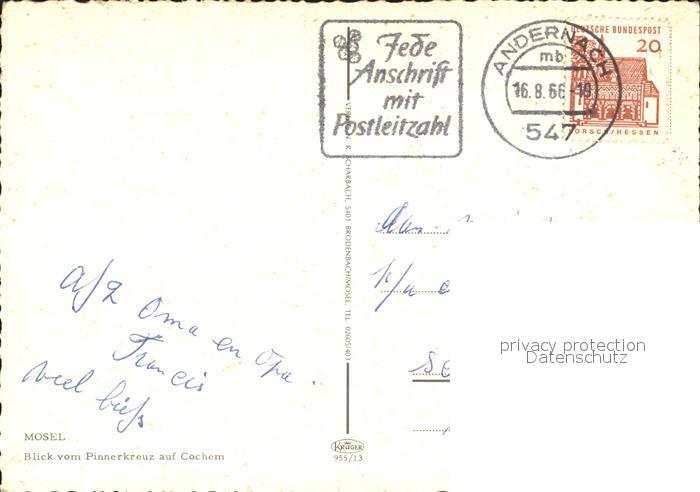 Jede
Anschrift
mit
Postleitzahl
ANDERNACH
mb
16.8.66-19
547
DEUTSCHE BUNDESPOST
20
LORSCH/HESSEN
R. SCHARBACH, 5401 BRODENBACH/MOSEL, TEL. 02605/403
Oma en Opa.
Francis
veel
MOSEL
Blick vom Pinnerkreuz auf Cochem
KRÜGER
955/13
privacy protection
Datenschutz